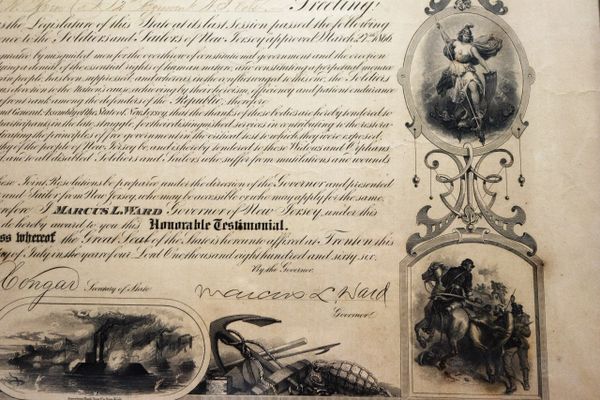 Greeting:
the Legislature of this State at its last Session passed the following
ence to the Soldiers and Sailors of New Jersey approved March 27th 1866
people has been suppressed, and whereas in the conflict waged to this end the Soldiers
devotion to the Nation's cause, achieving by their heroism, efficiency and patient endurance
front rank among the defenders of the Republic, therefore
General Assembly of the State of New Jersey, that the thanks of these bodies are hereby tendered to
the principles of free government in the critical test to which they were exposed,
of the people of New Jersey be, and is hereby tendered to the Widows and Orphans
and to all disabled Soldiers and Sailors who suffer from mutilations and wounds
Joint Resolutions be prepared under the direction of the Governor and presented
and Sailor from New Jersey, who may be accessible or who may apply for the same.
efore I MARCUS L. WARD Governor of New Jersey, under this
do hereby award to you this Honorable Testimonial.
ss whereof the Great Seal of the State is hereunto affixed at Trenton this
ay of July in the year of our Lord One thousand eight hundred and sixty six.
By the Governor.
Congar Secretary of State
Marcus L. Ward
Governor.